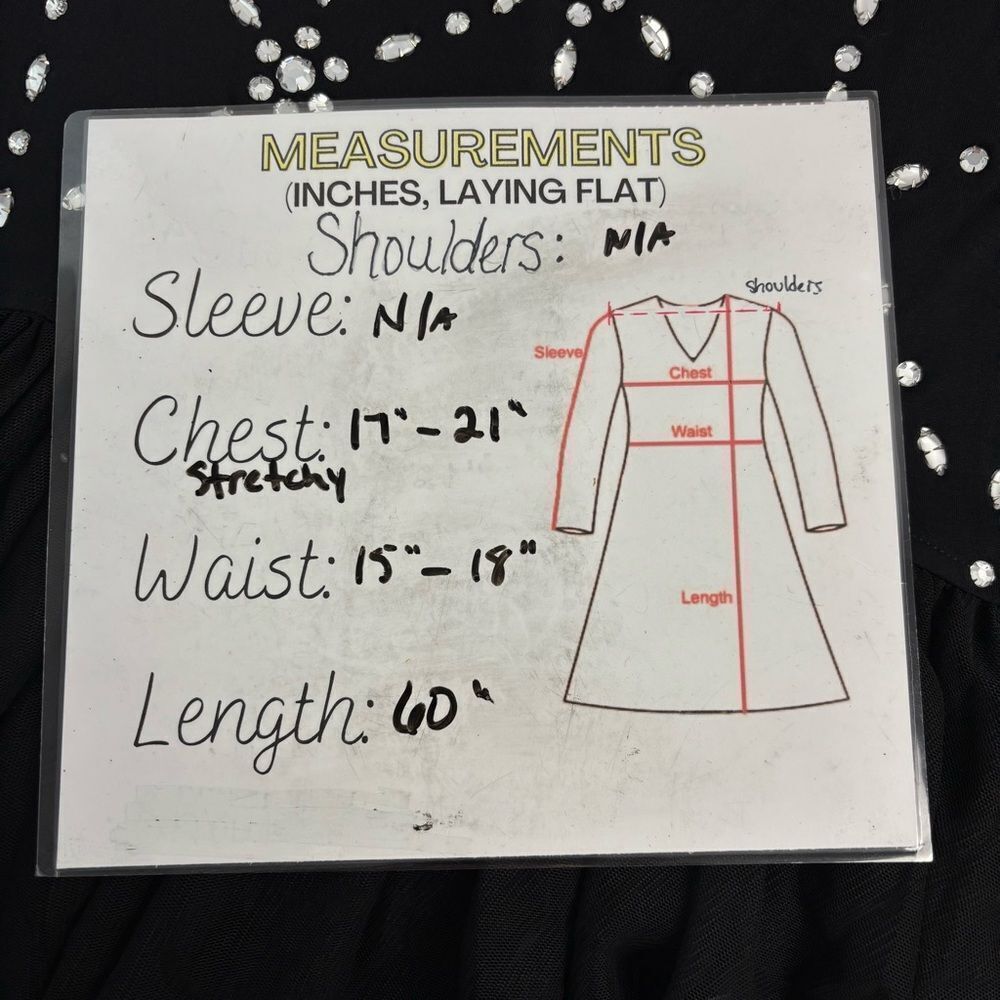 MEASUREMENTS
(INCHES, LAYING FLAT)
Shoulders: N/A
Sleeve: N/A
Chest: 17" - 21"
Stretchy
Waist: 15" - 18"
Length: 60"
shoulders
Sleeve
Chest
Waist
Length